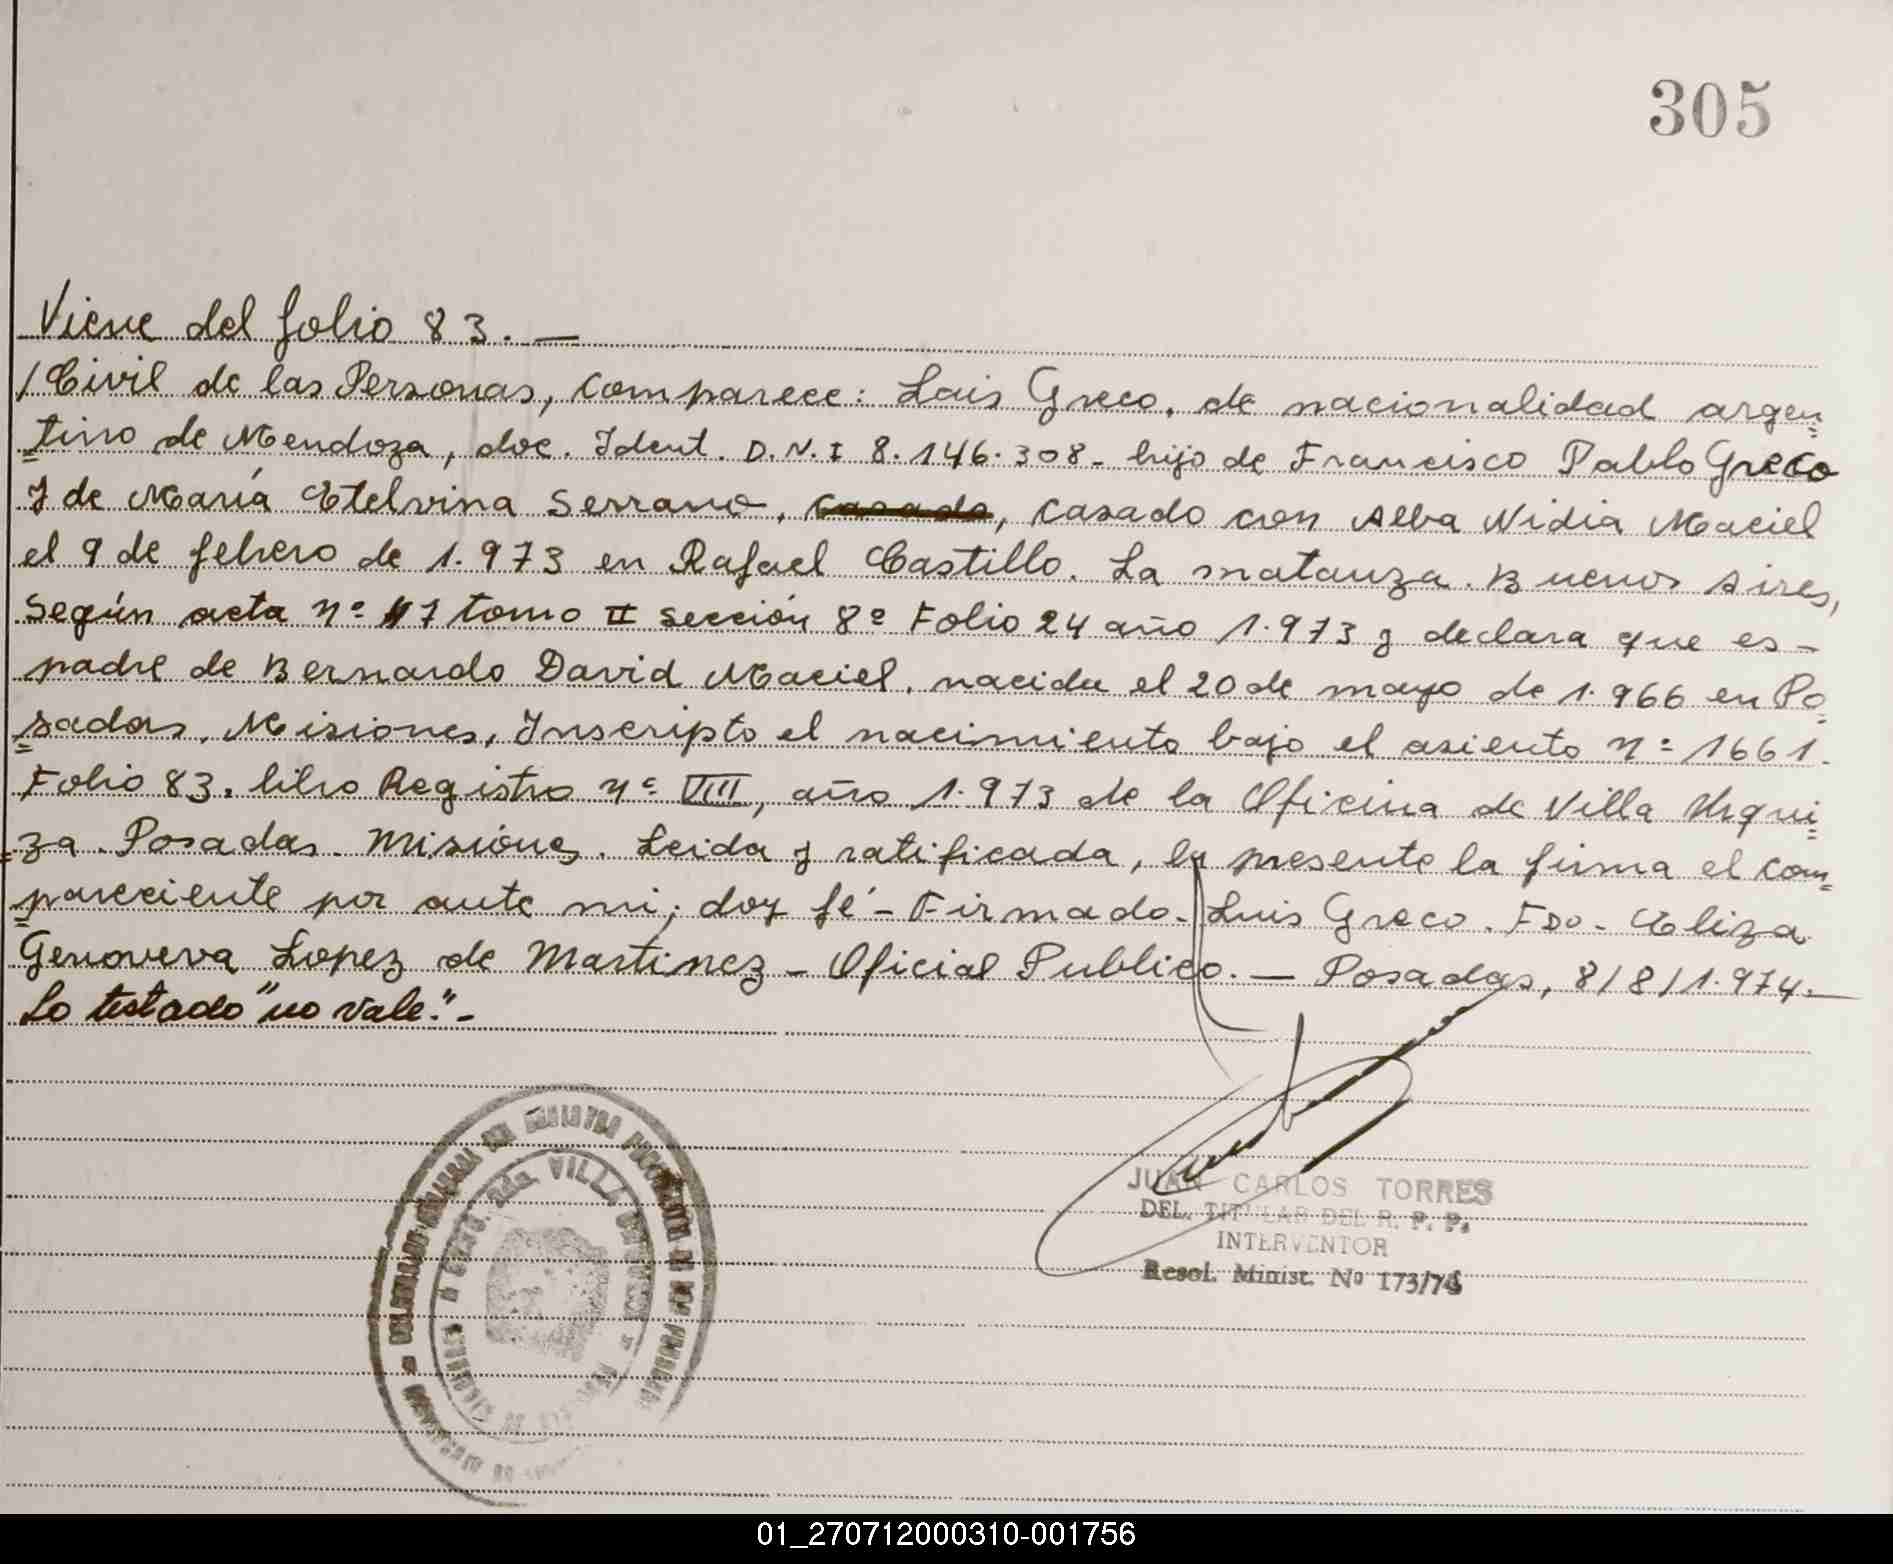 305
Viene del folio 83. —
/Civil de las Personas, comparece: Luis Greco, de nacionalidad argen=
=tino de Mendoza, doc. Ident. D.N.I 8.146.308- hijo de Francisco Pablo Greco
y de María Etelvina Serrano, casado, casado con Alba Nidia Maciel
el 9 de febrero de 1.973 en Rafael Castillo. La matanza. Buenos Aires,
según acta nº 17 tomo II sección 8º Folio 24 año 1.973 y declara que es-
padre de Bernardo David Maciel, nacido el 20 de mayo de 1.966 en Po=
=sadas, Misiones, Inscripto el nacimiento bajo el asiento nº 1661.
Folio 83. libro Registro nº VIII, año 1.973 de la Oficina de Villa Urqui=
=za. Posadas. Misiones. Leida y ratificada, la presente la firma el com=
=pareciente por ante mi; doy fé- Firmado- Luis Greco. FDO- Eliza
Genoveva Lopez de Martinez - Oficial Publico. — Posadas, 8/8/1.974.—
Lo testado "no vale".-
JUAN CARLOS TORRES
DEL. TITULAR DEL R. P. P.
INTERVENTOR
Resol. Minist. Nº 173/74
VILLA
01_270712000310-001756